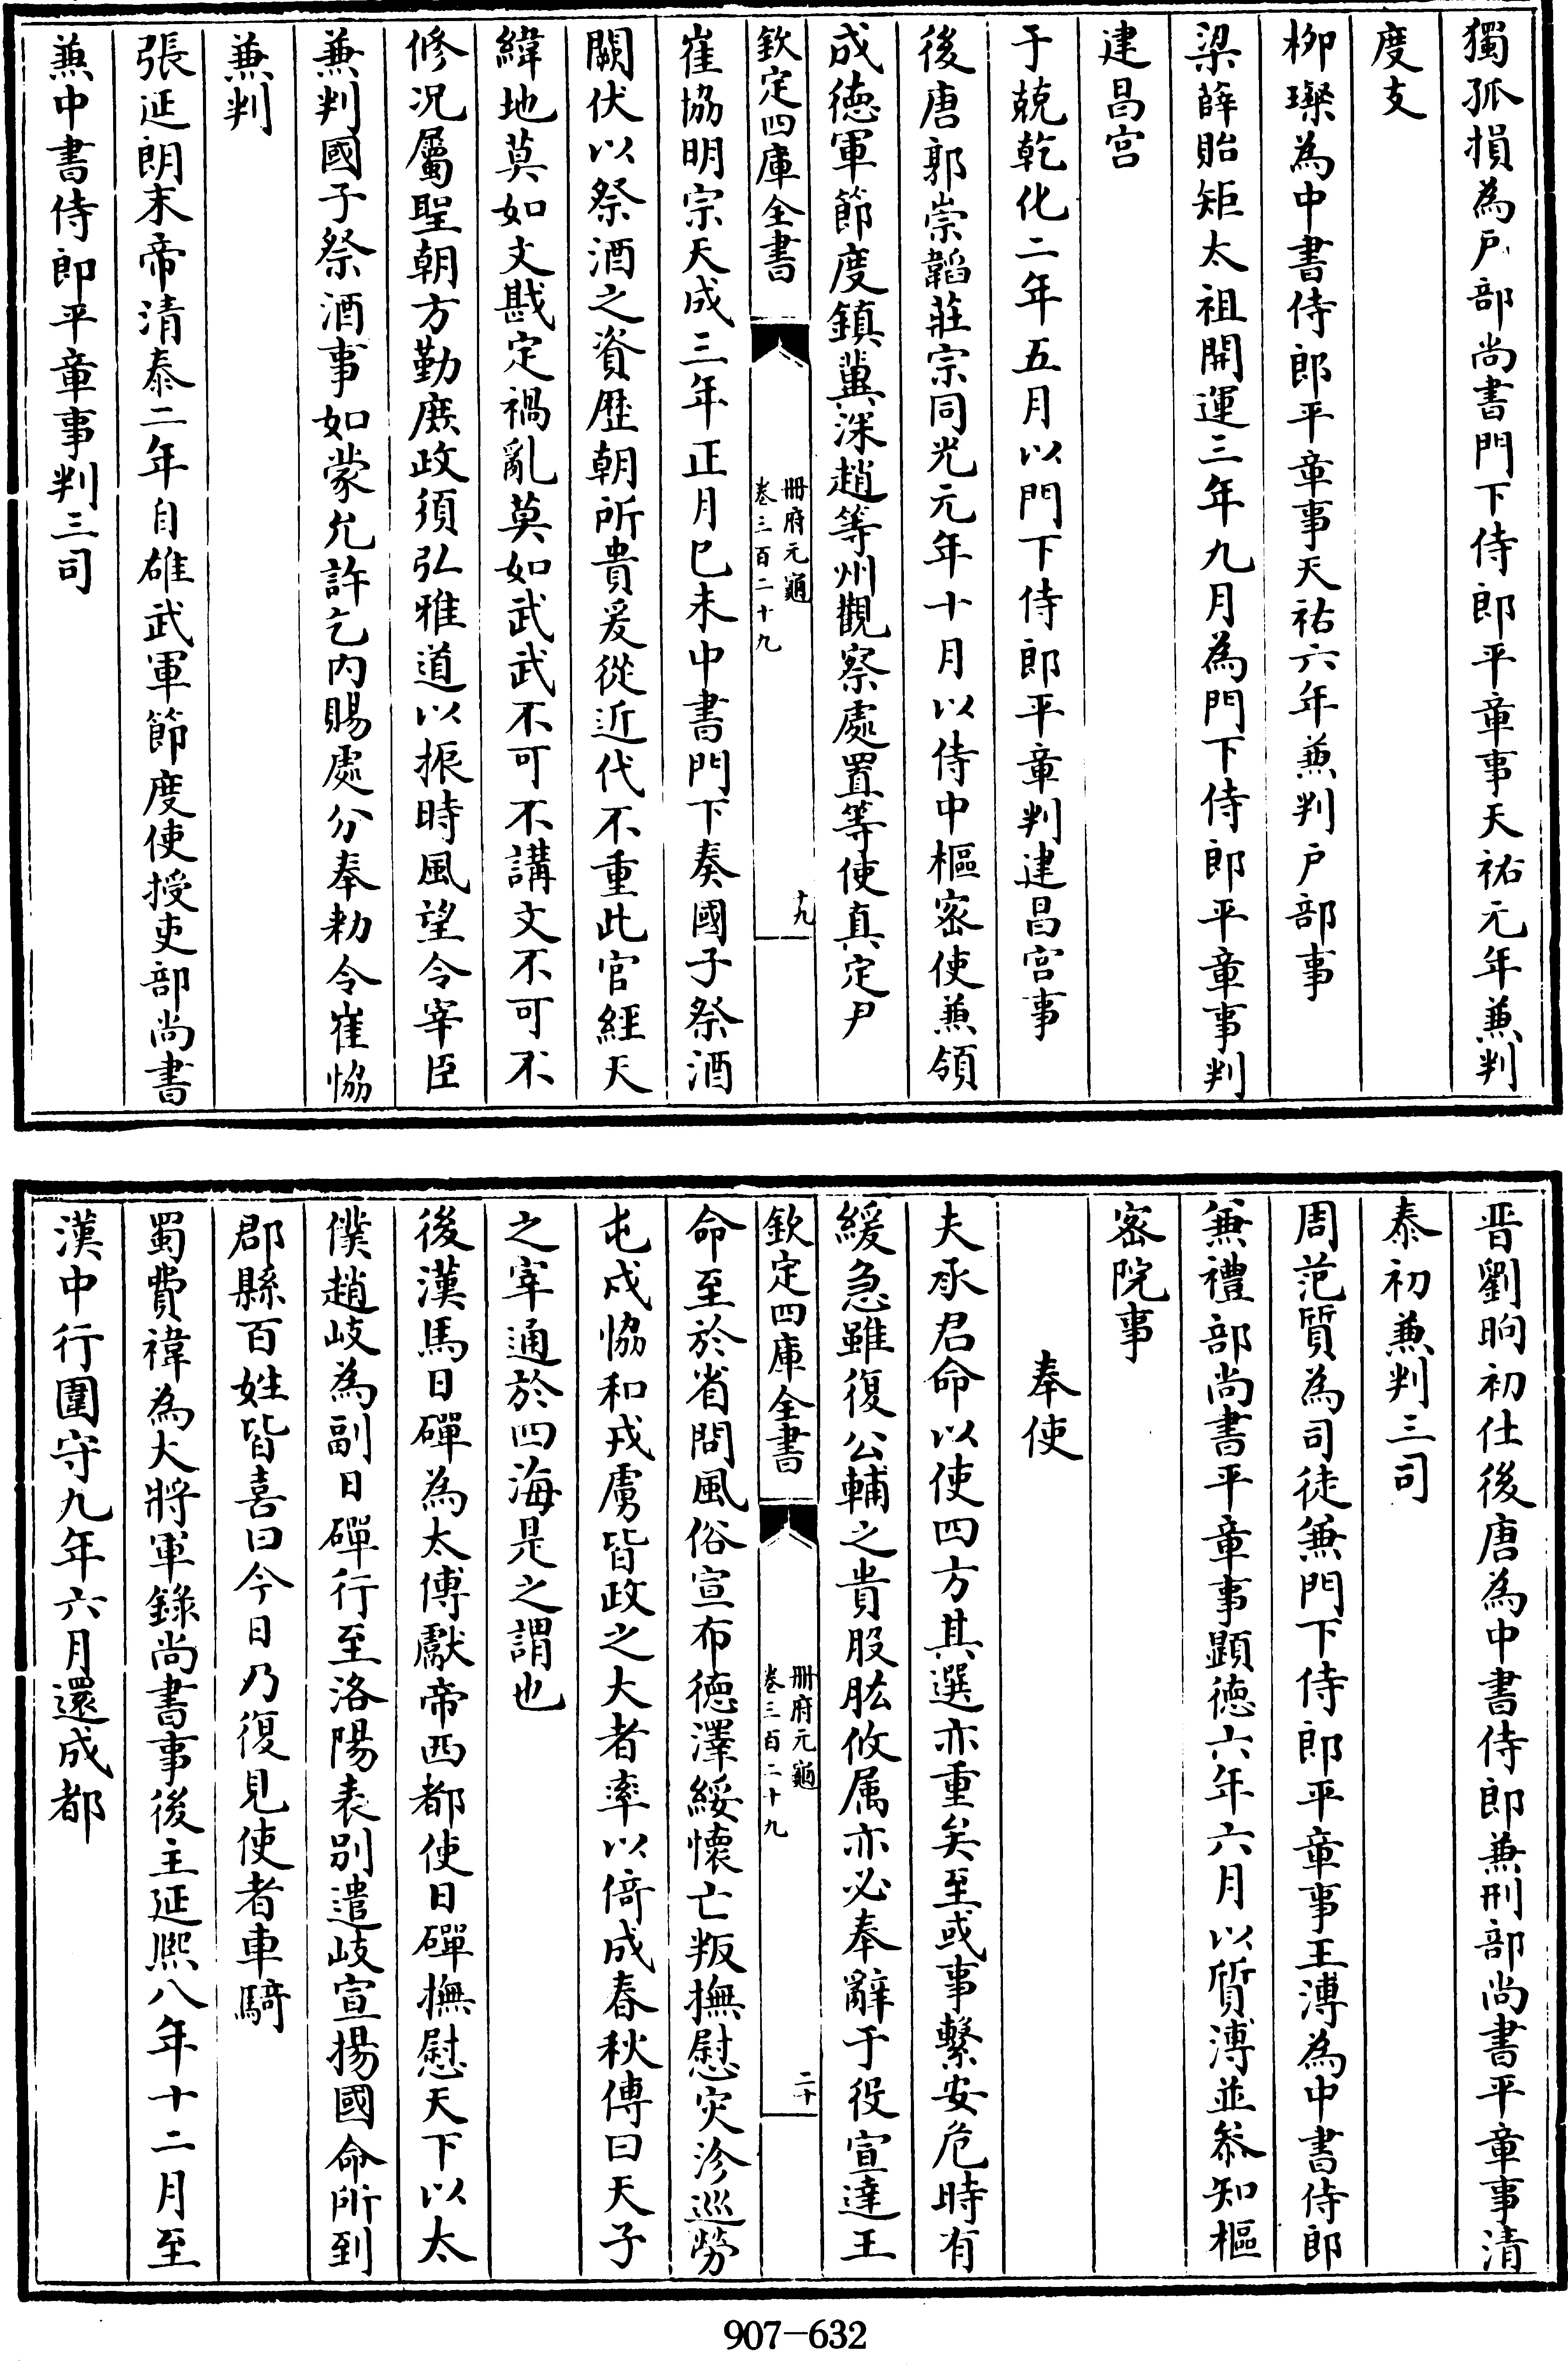 獨孤損為戶部尚書門下侍郎平章事天祐元年兼判
度支
柳璨為中書侍郎平章事天祐六年兼判戶部事
梁薛貽矩太祖開運三年九月為門下侍郎平章事判
建昌宫
于兢乾化二年五月以門下侍郎平章判建昌宫事
後唐郭崇韜莊宗同光元年十月以侍中樞密使兼領
成徳軍節度鎮冀深趙等州觀察處置等使真定尹
欽定四庫全書
冊府元龜
卷三百二十九
十九
崔協明宗天成三年正月已未中書門下奏國子祭酒
闕伏以祭酒之資歴朝所貴爰從近代不重此官經天
緯地莫如文戡定禍亂莫如武武不可不講文不可不
修况屬聖朝方勤庶政須弘雅道以振時風望令宰臣
兼判國子祭酒事如蒙允許乞内賜處分奉勑令崔恊
兼判
張延朗末帝清泰二年自雄武軍節度使授吏部尚書
兼中書侍郎平章事判三司
晋劉昫初仕後唐為中書侍郎兼刑部尚書平章事清
泰初兼判三司
周范質為司徒兼門下侍郎平章事王溥為中書侍郎
兼禮部尚書平章事顯徳六年六月以質溥並叅知樞
密院事
奉使
夫承君命以使四方其選亦重矣至或事繫安危時有
緩急雖復公輔之貴股肱攸属亦必奉辭于役宣達王
欽定四庫全書
冊府元龜
卷三百二十九
二十
命至於省問風俗宣布徳澤綏懷亡叛撫慰灾沴巡勞
屯戍恊和戎虜皆政之大者率以倚成春秋傳曰天子
之宰通於四海是之謂也
後漢馬日磾為太傅獻帝西都使日磾撫慰天下以太
僕趙岐為副日磾行至洛陽表别遣岐宣揚國命所到
郡縣百姓皆喜曰今日乃復見使者車騎
蜀費禕為大將軍錄尚書事後主延熙八年十二月至
漢中行圍守九年六月還成都
907-632